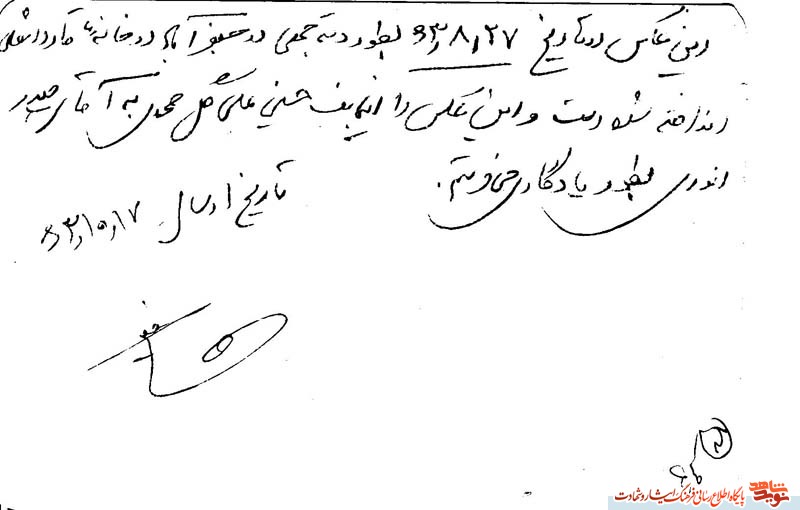 این عکس در تاریخ ۶۳٫۸٫۲۷ بطور دسته جمعی در جعفرآباد در خانه
انداخته شده است و این عکس را اینجانب حسین علی گل محمدی به آقای حیدر
انوری بطور یادگاری می‌فرستم.
تاریخ ارسال ۶۳٫۱۰٫۱۷
پایگاه اطلاع رسانی فرهنگ ایثار و شهادت
نوید شاهد